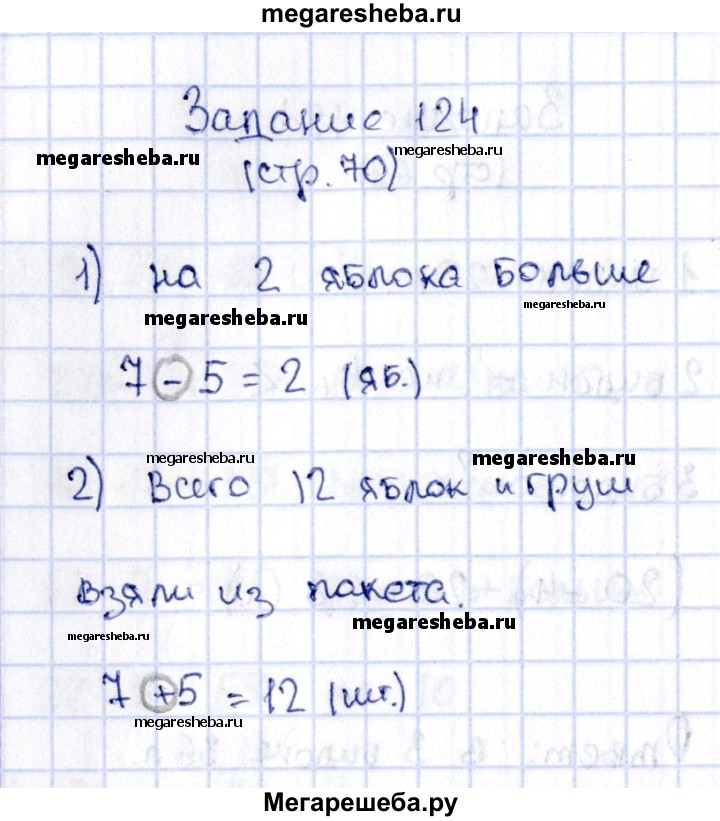 megaresheba.ru
Задание 124
megaresheba.ru
megaresheba.ru
(стр. 70)
1) на 2 яблока больше
megaresheba.ru
megaresheba.ru
7 - 5 = 2 (яб.)
megaresheba.ru
megaresheba.ru
2) Всего 12 яблок и груш
взяли из пакета.
megaresheba.ru
megaresheba.ru
7 + 5 = 12 (шт.)
megaresheba.ru
Мегарешеба.ру